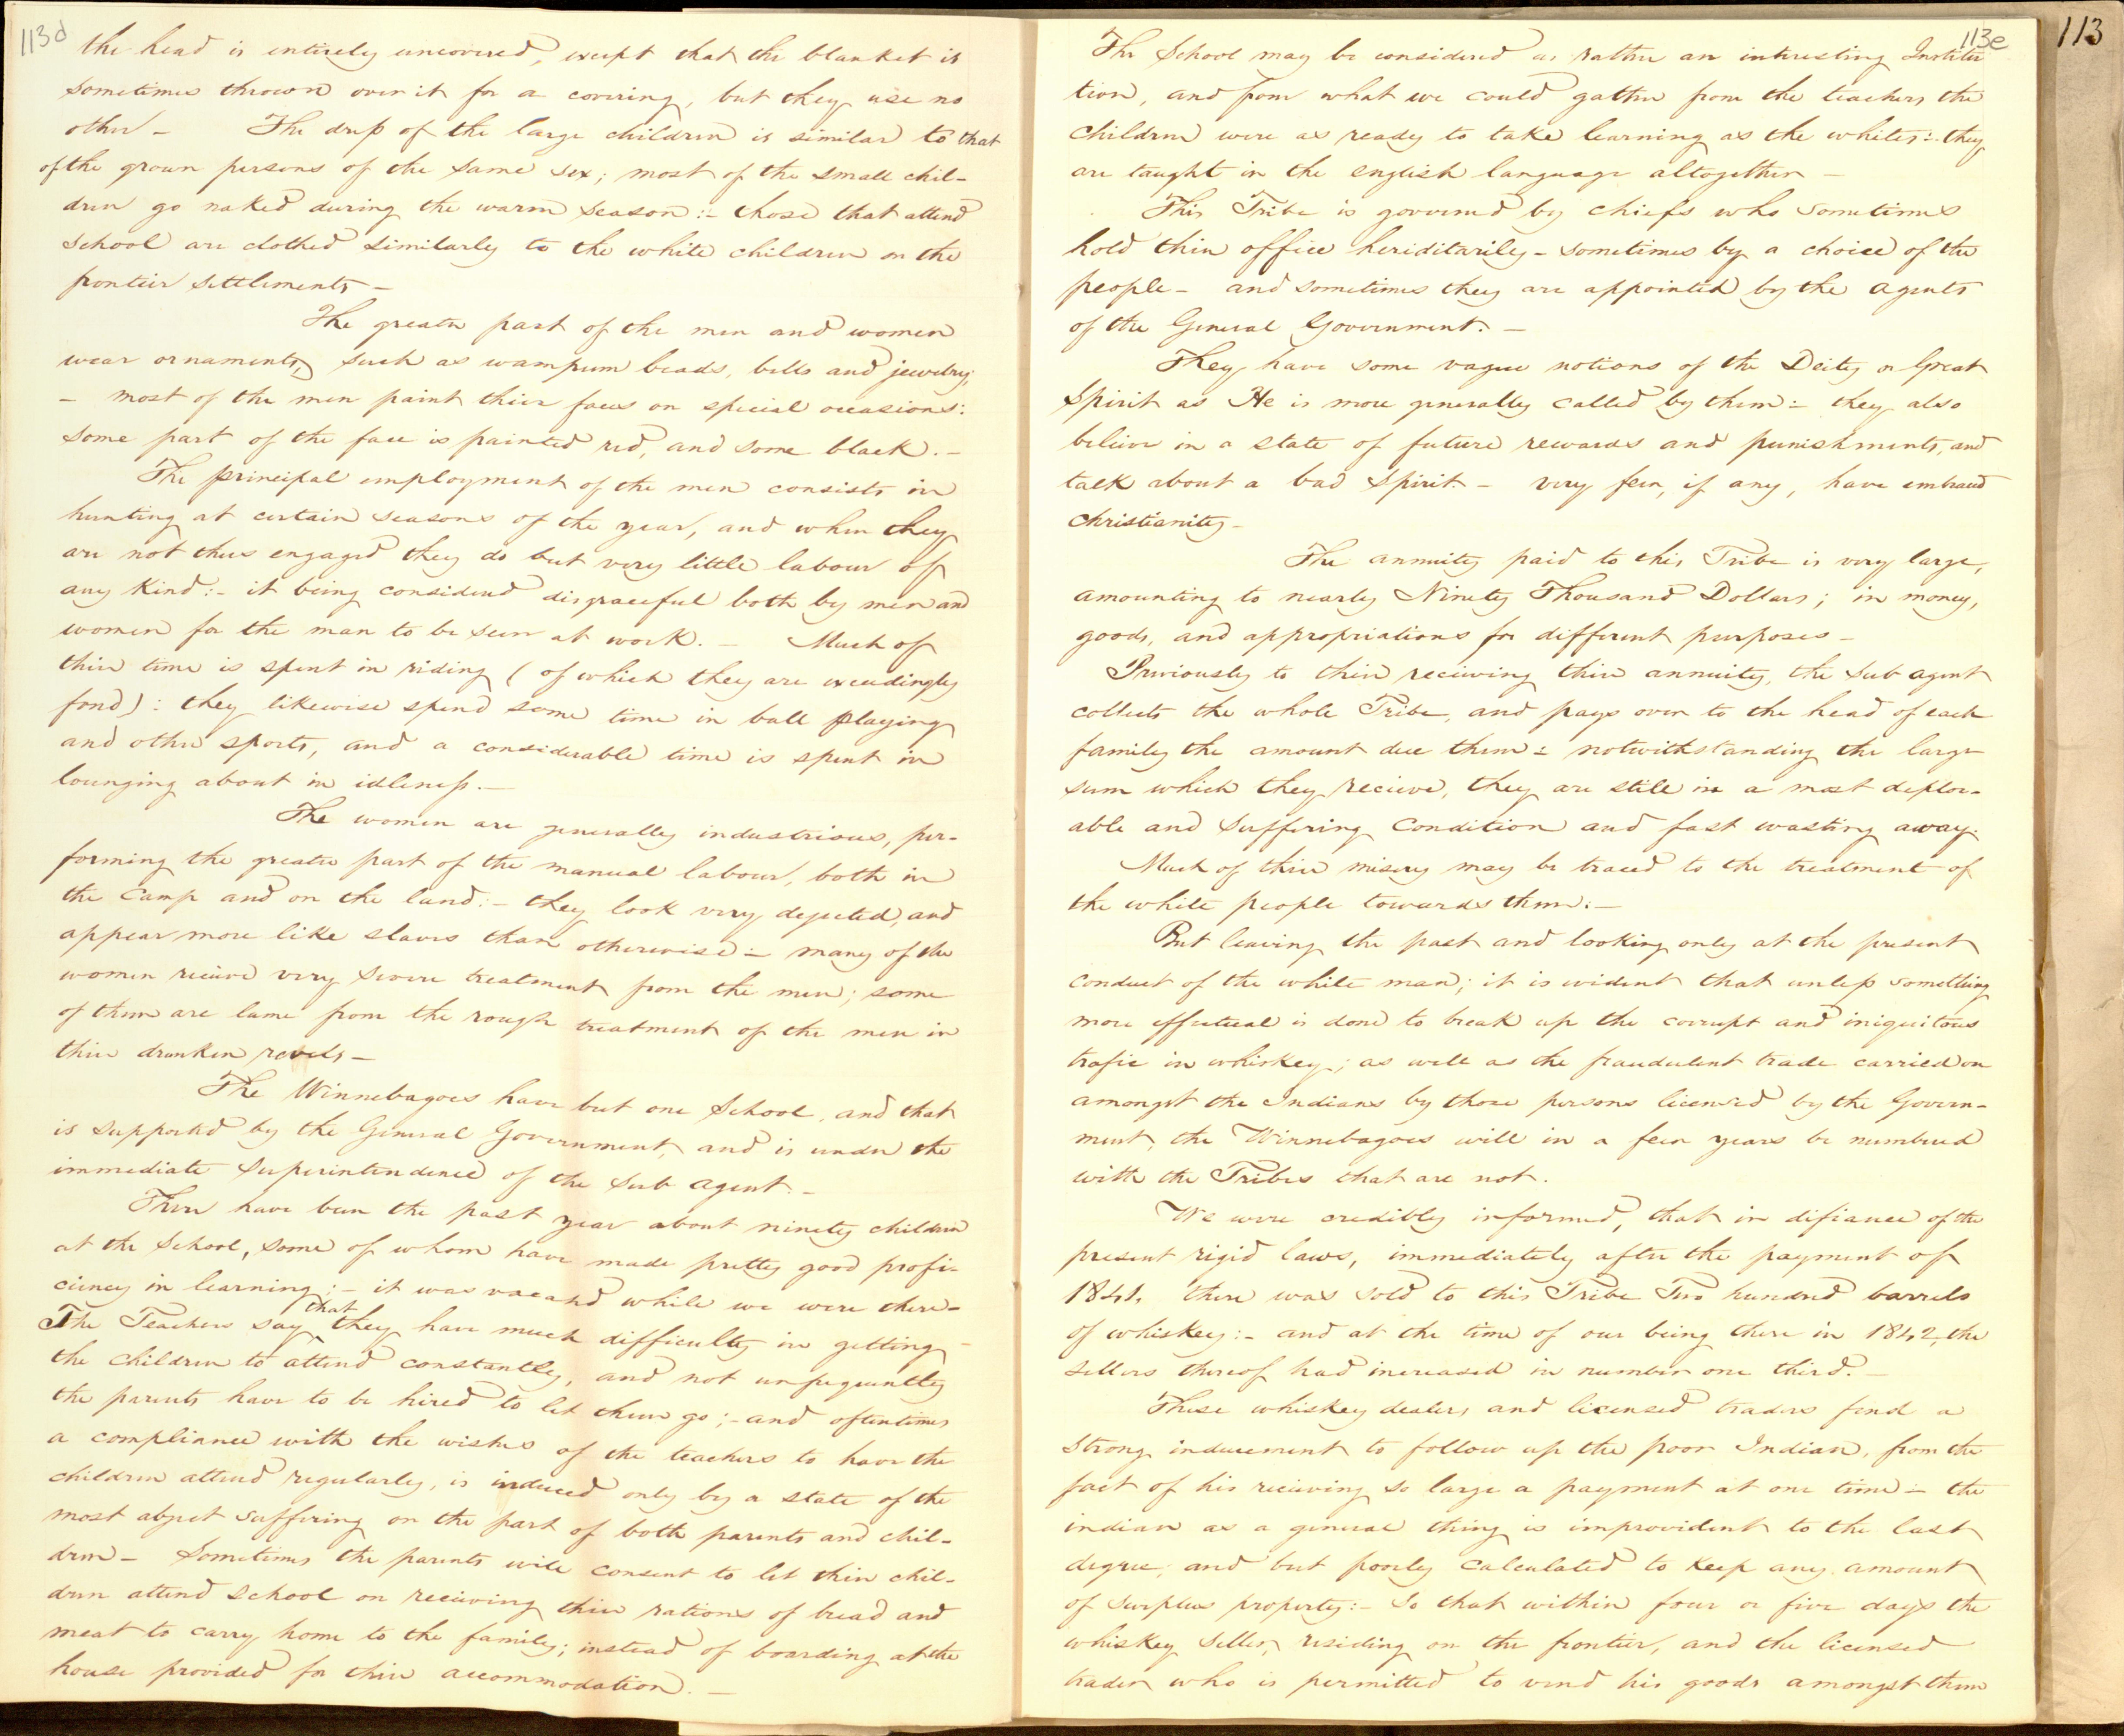 113d
the head is entirely uncovered, except that the blanket is
sometimes thrown over it for a covering, but they use no
other - The dress of the large children is similar to that
of the grown persons of the same sex; most of the small chil-
dren go naked during the warm season:- those that attend
school are clothed similarly to the white children on the
frontier settlements -
The greater part of the men and women
wear ornaments, such as wampum beads, bells and jewelry;
- most of the men paint their faces on special occasions:
some part of the face is painted red, and some black. -
The principal employment of the men consists in
hunting at certain seasons of the year, and when they
are not thus engaged they do but very little labour of
any kind:- it being considered disgraceful both by men and
women for the man to be seen at work. - Much of
their time is spent in riding (of which they are exceedingly
fond): they likewise spend some time in ball playing
and other sports, and a considerable time is spent in
lounging about in idleness. -
The women are generally industrious, per-
forming the greater part of the manual labour, both in
the camp and on the land:- they look very dejected, and
appear more like slaves than otherwise:- many of the
women recieve very severe treatment from the men; some
of them are lame from the rough treatment of the men in
their drunken revels -
The Winnebagoes have but one School, and that
is supported by the General Government, and is under the
immediate superintendence of the Sub agent. -
There have been the past year about ninety children
at the School, some of whom have made pretty good profi-
ciency in learning:- it was vacated while we were there -
The Teachers say that they have much difficulty in getting
the children to attend constantly, and not unfrequently
the parents have to be hired to let them go;- and oftentimes
a compliance with the wishes of the teachers to have the
children attend regularly, is induced only by a state of the
most abject suffering on the part of both parents and chil-
dren - Sometimes the parents will consent to let their chil-
dren attend school on recieving their rations of bread and
meat to carry home to the family; instead of boarding at the
house provided for their accommodation. -
113e
113
The School may be considered as rather an interesting Institu
tion, and from what we could gather from the teachers the
children were as ready to take learning as the whites:- they
are taught in the english language altogether -
This Tribe is governed by chiefs who sometimes
hold their office heriditarily - sometimes by a choice of the
people - and sometimes they are appointed by the agents
of the General Government. -
They have some vague notions of the Deity or Great
Spirit as He is more generally called by them:- they also
believe in a state of future rewards and punishments, and
talk about a bad Spirit - very few, if any, have embraced
christianity -
The annuity paid to this Tribe is very large,
amounting to nearly Ninety Thousand Dollars; in money,
goods, and appropriations for different purposes -
Previously to their recieving their annuity, the Sub agent
collects the whole Tribe, and pays over to the head of each
family the amount due them:- notwithstanding the large
sum which they recieve, they are still in a most deplor-
able and suffering condition and fast wasting away.
Much of their misery may be traced to the treatment of
the white people towards them:-
But leaving the past and looking only at the present
conduct of the white man; it is evident that unless something
more effectual is done to break up the corrupt and iniquitous
trafic in whiskey; as well as the fraudulent trade carried on
amongst the Indians by those persons licensed by the Govern-
ment, the Winnebagoes will in a few years be numbered
with the Tribes that are not.
We were credibly informed, that in difiance of the
present rigid laws, immediately after the payment of
1841, there was sold to this Tribe Two hundred barrels
of whiskey:- and at the time of our being there in 1842, the
sellers thereof had increased in number one third. -
These whiskey dealers and licensed traders find a
strong inducement to follow up the poor Indian, from the
fact of his recieving so large a payment at one time:- the
indian as a general thing is improvident to the last
degree, and but poorly calculated to keep any amount
of surplus property:- So that within four or five days the
whiskey seller, residing on the frontier, and the licensed
trader who is permitted to vend his goods amongst them